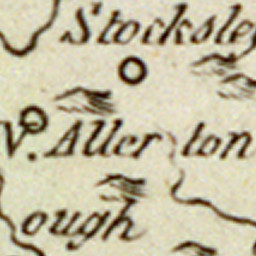 Stocksley
V. Allerton
ough